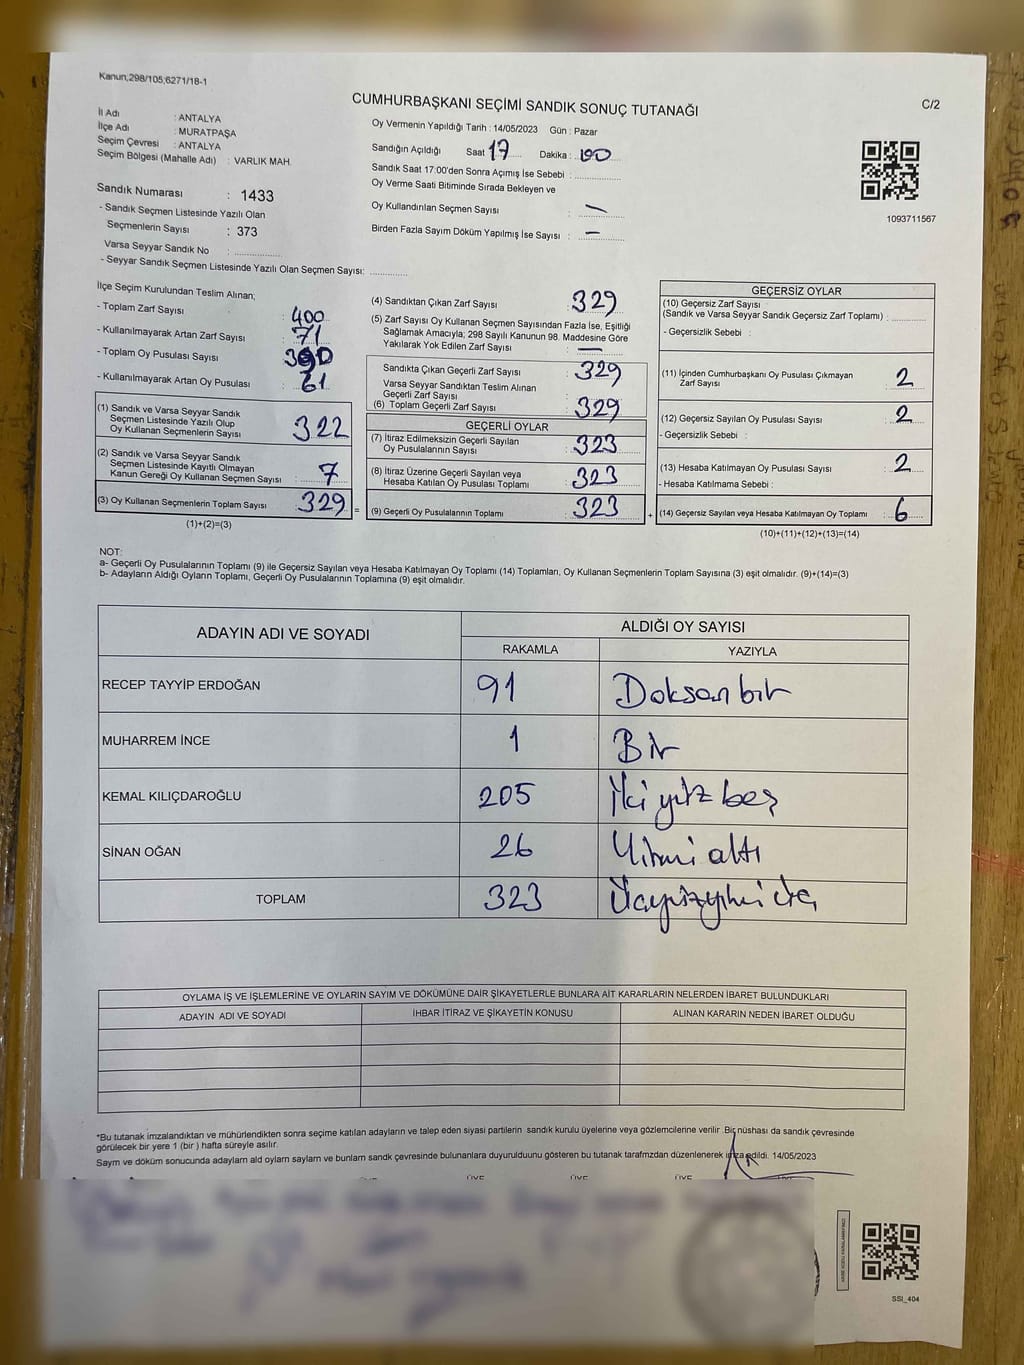 Kanun;298/105;6271/18-1
CUMHURBAŞKANI SEÇİMİ SANDIK SONUÇ TUTANAĞI
C/2
İl Adı : ANTALYA
İlçe Adı : MURATPAŞA
Seçim Çevresi : ANTALYA
Seçim Bölgesi (Mahalle Adı) : VARLIK MAH.
Sandık Numarası : 1433
- Sandık Seçmen Listesinde Yazılı Olan
Seçmenlerin Sayısı : 373
Varsa Seyyar Sandık No :
- Seyyar Sandık Seçmen Listesinde Yazılı Olan Seçmen Sayısı:
Oy Vermenin Yapıldığı Tarih : 14/05/2023 Gün : Pazar
Sandığın Açıldığı Saat 17 Dakika :
Sandık Saat 17:00'den Sonra Açımış İse Sebebi :
Oy Verme Saati Bitiminde Sırada Bekleyen ve
Oy Kullandırılan Seçmen Sayısı : —
Birden Fazla Sayım Döküm Yapılmış İse Sayısı : —
1093711567
İlçe Seçim Kurulundan Teslim Alınan;
- Toplam Zarf Sayısı : 400
- Kullanılmayarak Artan Zarf Sayısı : 71
- Toplam Oy Pusulası Sayısı : 390
- Kullanılmayarak Artan Oy Pusulası : 61
(1) Sandık ve Varsa Seyyar Sandık
Seçmen Listesinde Yazılı Olup
Oy Kullanan Seçmenlerin Sayısı : 322
(2) Sandık ve Varsa Seyyar Sandık
Seçmen Listesinde Kayıtlı Olmayan
Kanun Gereği Oy Kullanan Seçmen Sayısı : 7
(3) Oy Kullanan Seçmenlerin Toplam Sayısı : 329 =
(1)+(2)=(3)
(4) Sandıktan Çıkan Zarf Sayısı : 329
(5) Zarf Sayısı Oy Kullanan Seçmen Sayısından Fazla İse, Eşitliği
Sağlamak Amacıyla; 298 Sayılı Kanunun 98. Maddesine Göre
Yakılarak Yok Edilen Zarf Sayısı : —
Sandıkta Çıkan Geçerli Zarf Sayısı : 329
Varsa Seyyar Sandıktan Teslim Alınan
Geçerli Zarf Sayısı :
(6) Toplam Geçerli Zarf Sayısı : 329
GEÇERLİ OYLAR
(7) İtiraz Edilmeksizin Geçerli Sayılan
Oy Pusulalarının Sayısı : 323
(8) İtiraz Üzerine Geçerli Sayılan veya
Hesaba Katılan Oy Pusulaları Toplamı : 323
(9) Geçerli Oy Pusulalarının Toplamı : 323 +
GEÇERSİZ OYLAR
(10) Geçersiz Zarf Sayısı
(Sandık ve Varsa Seyyar Sandık Geçersiz Zarf Toplamı) :
- Geçersizlik Sebebi :
(11) İçinden Cumhurbaşkanı Oy Pusulası Çıkmayan
Zarf Sayısı : 2
(12) Geçersiz Sayılan Oy Pusulası Sayısı : 2
- Geçersizlik Sebebi :
(13) Hesaba Katılmayan Oy Pusulası Sayısı : 2
- Hesaba Katılmama Sebebi :
(14) Geçersiz Sayılan veya Hesaba Katılmayan Oy Toplamı : 6
(10)+(11)+(12)+(13)=(14)
NOT:
a- Geçerli Oy Pusulalarının Toplamı (9) ile Geçersiz Sayılan veya Hesaba Katılmayan Oy Toplamı (14) Toplamları, Oy Kullanan Seçmenlerin Toplam Sayısına (3) eşit olmalıdır. (9)+(14)=(3)
b- Adayların Aldığı Oyların Toplamı, Geçerli Oy Pusulalarının Toplamına (9) eşit olmalıdır.
ADAYIN ADI VE SOYADI
ALDIĞI OY SAYISI
RAKAMLA YAZIYLA
RECEP TAYYİP ERDOĞAN 91 Doksan bir
MUHARREM İNCE 1 Bir
KEMAL KILIÇDAROĞLU 205 İki yüz beş
SİNAN OĞAN 26 Yirmi altı
TOPLAM 323
OYLAMA İŞ VE İŞLEMLERİNE VE OYLARIN SAYIM VE DÖKÜMÜNE DAİR ŞİKAYETLERLE BUNLARA AİT KARARLARIN NELERDEN İBARET BULUNDUKLARI
ADAYIN ADI VE SOYADI İHBAR İTİRAZ VE ŞİKAYETİN KONUSU ALINAN KARARIN NEDEN İBARET OLDUĞU
*Bu tutanak imzalandıktan ve mühürlendikten sonra seçime katılan adayların ve talep eden siyasi partilerin sandık kurulu üyelerine veya gözlemcilerine verilir. Bir nüshası da sandık çevresinde
görülecek bir yere 1 (bir ) hafta süreyle asılır.
Sayım ve döküm sonucunda adaylarn ald oylarn saylarn ve bunlarn sandk çevresinde bulunanlara duyurulduunu gösteren bu tutanak tarafmzdan düzenlenerek imza edildi. 14/05/2023
ÜYE ÜYE ÜYE
SSI_404